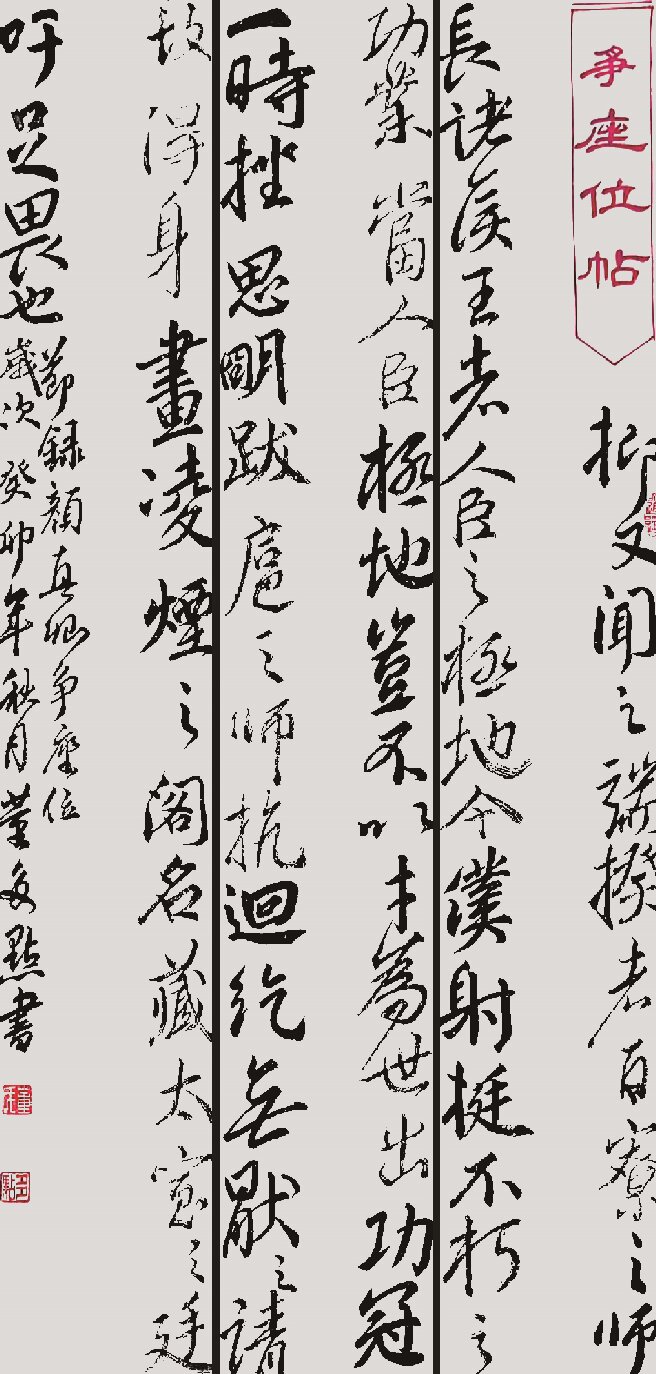 爭座位帖
抑又聞之端揆者百寮之师
長諸侯王者人臣之極地今僕射挺不朽之
功業當人臣極地豈不以才為世出功冠
一時挫思明跋扈之师抗迴紇無猒之請
故得身畫凌煙之阁名藏太室之廷
吁足畏也
節録顔真卿争座位
歲次癸卯年秋月董點書